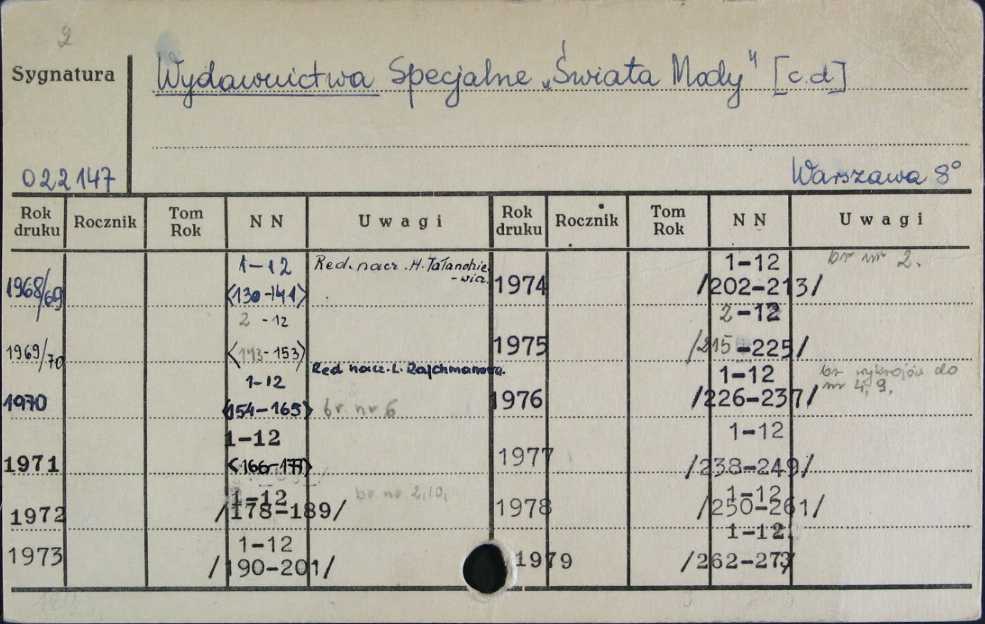 2
Sygnatura
Wydawnictwa Specjalne „Świata Mody" [c.d]
022147
Warszawa 8°
Rok druku Rocznik Tom Rok NN Uwagi Rok druku Rocznik Tom Rok NN Uwagi
1968/69 1-12 <130-141> Red. nacz. H. Tatandzie-wicz.
1969/70 2-12 <143-153>
1970 1-12 <154-165> Red nacz. L. Rajchmanowa. br nr 6
1971 1-12 <166-177>
1972 1-12 /178-189/ br nr 2,10,
1973 1-12 /190-201/
1974 1-12 /202-213/ br nr 2.
1975 2-12 /215-225/
1976 1-12 /226-237/ br wykrojów do nr 4, 9.
1977 1-12 /238-249/
1978 1-12 /250-261/
1979 1-12 /262-273/